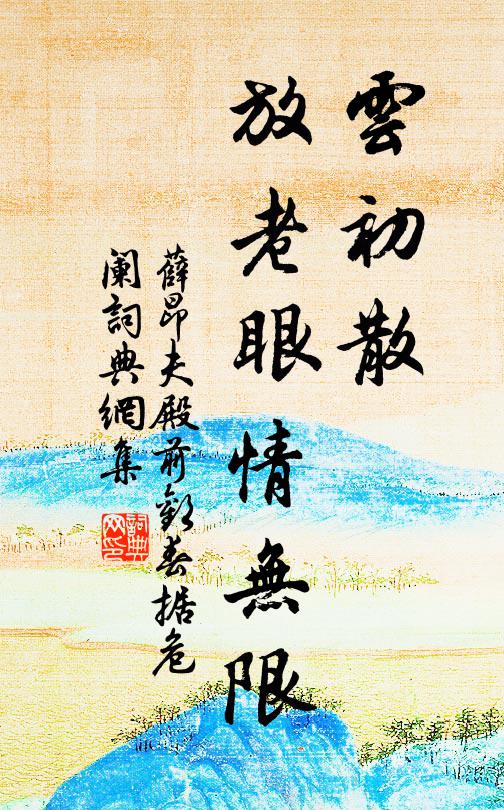 雲初散
放老眼情無限
薛昂夫殿前歡春据危
闌詞典網集
詞典網印